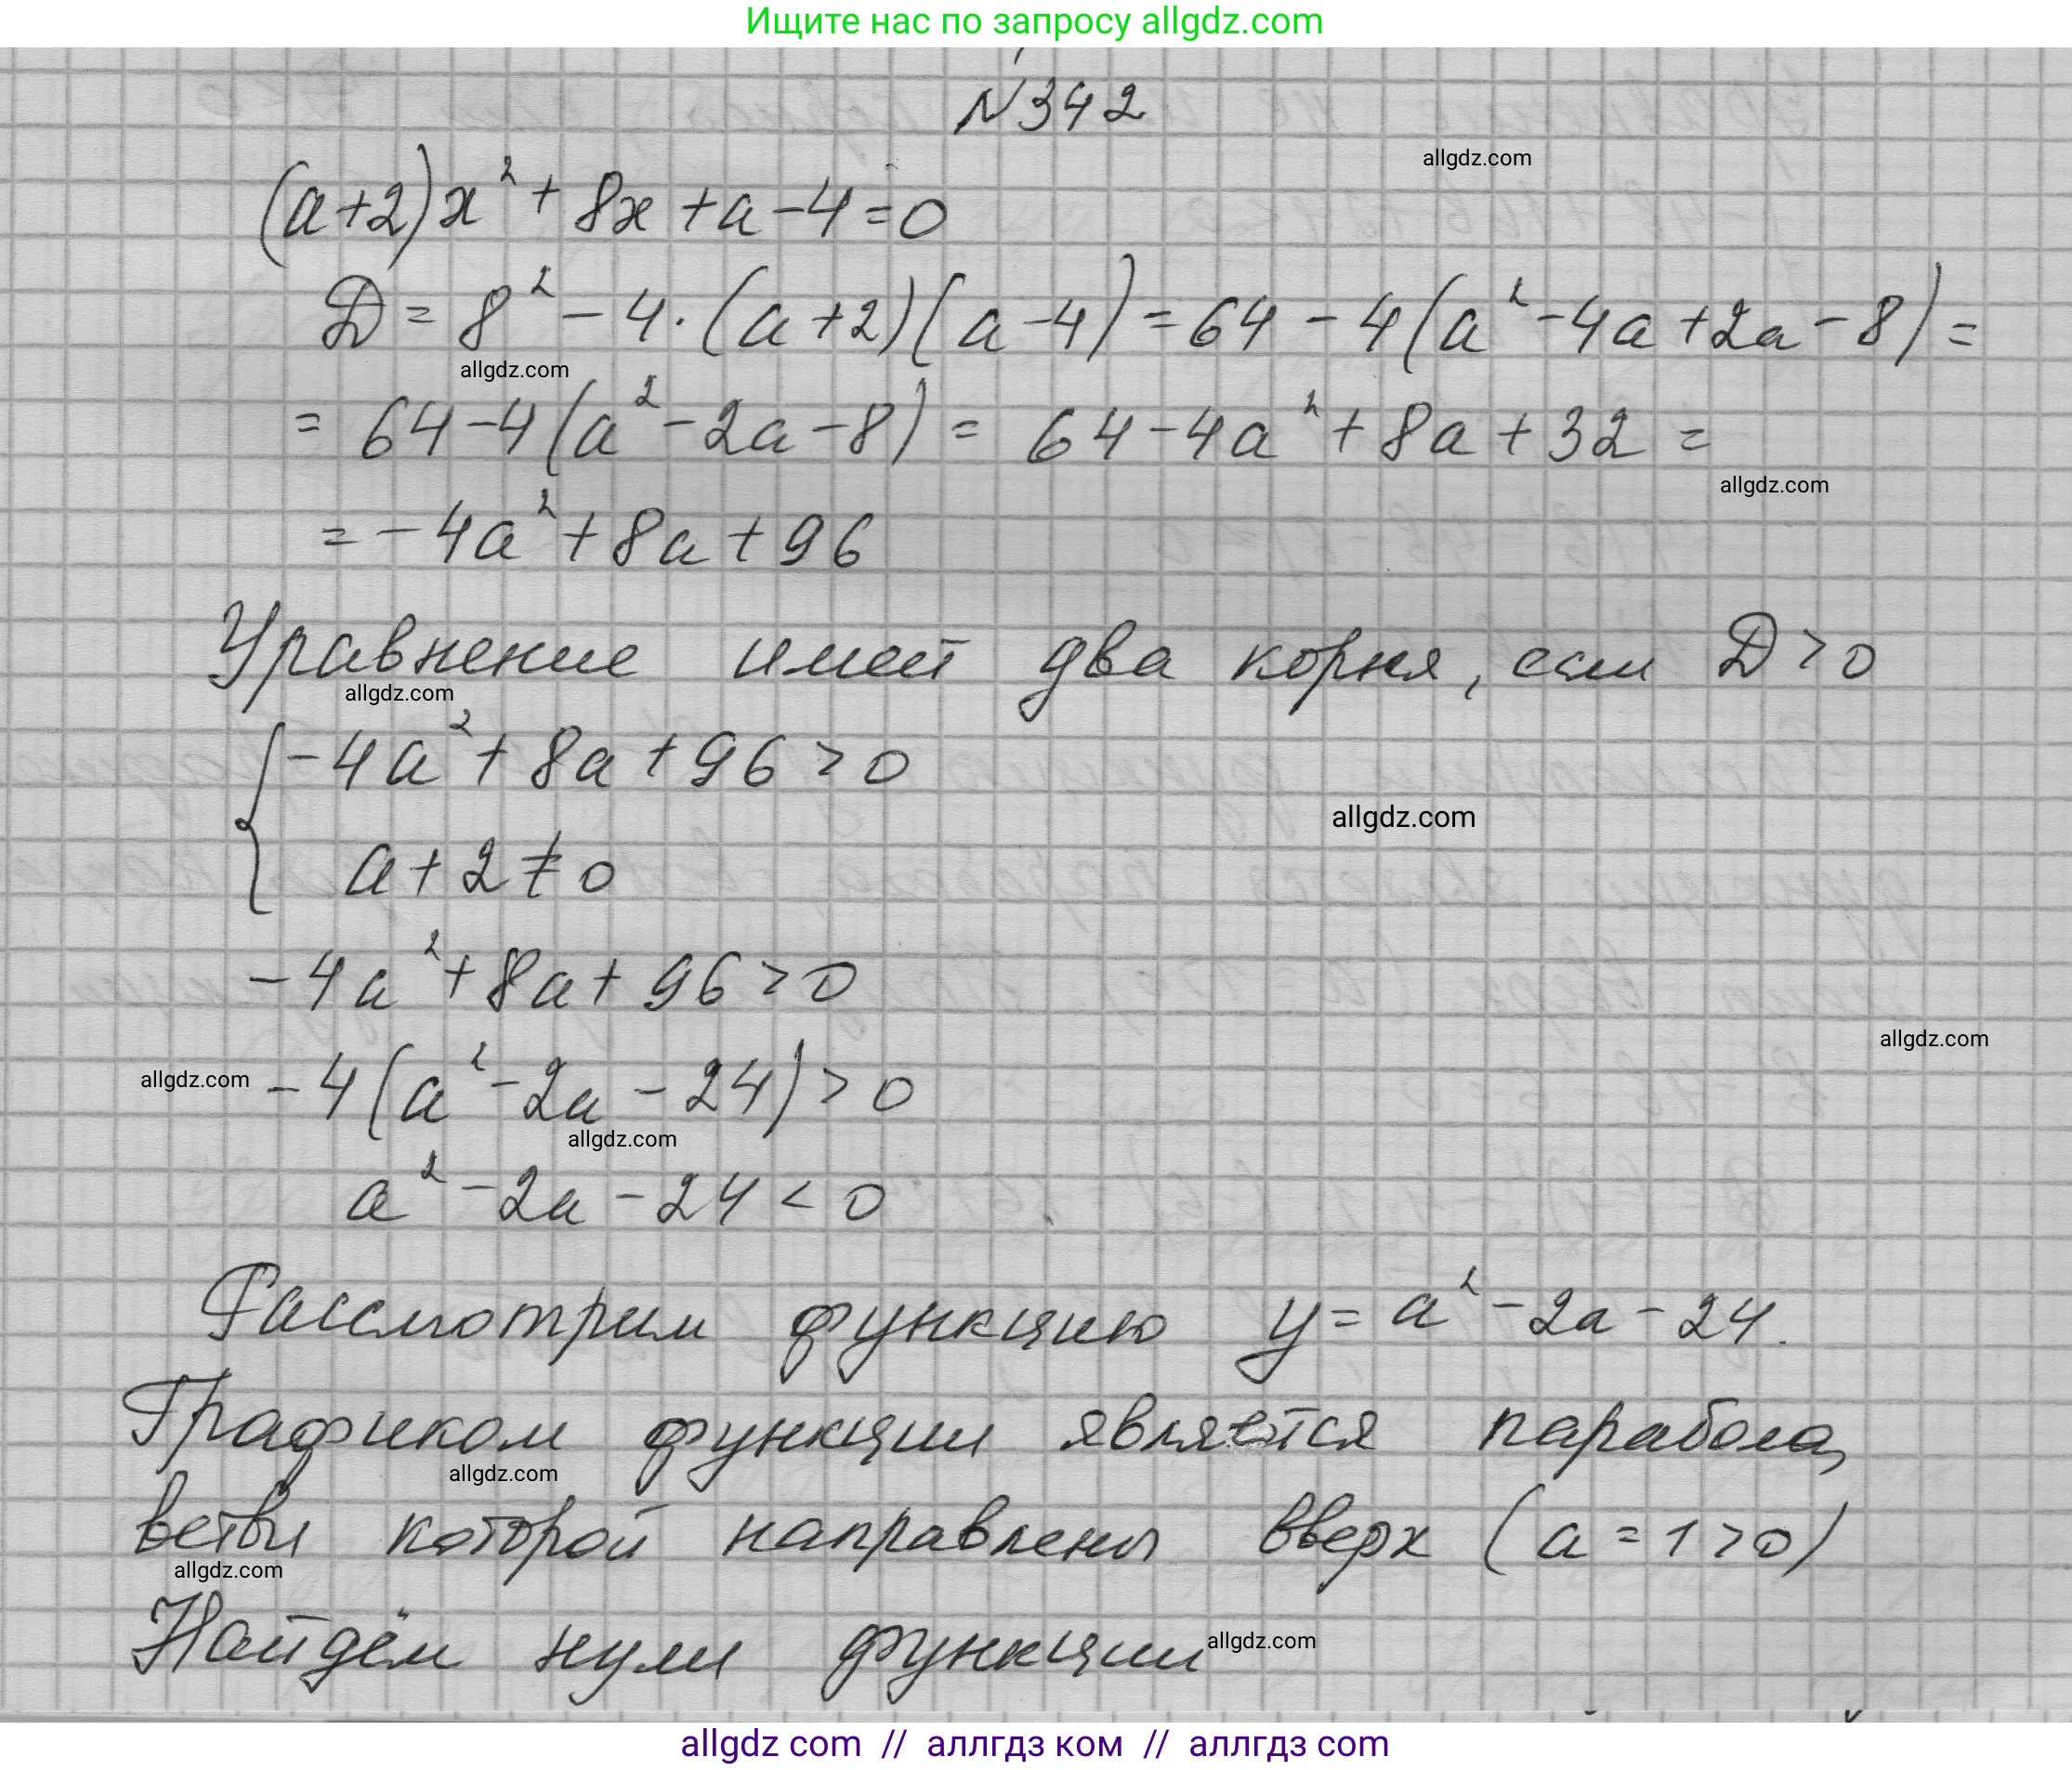 Ищите нас по запросу allgdz.com
N342
allgdz.com
(a+2)x²+8x+a-4=0
D=8²-4·(a+2)(a-4)=64-4(a²-4a+2a-8)=
allgdz.com
=64-4(a²-2a-8)=64-4a²+8a+32=
allgdz.com
=-4a²+8a+96
Уравнение имеет два корня, если D>0
allgdz.com
{-4a²+8a+96>0
allgdz.com
a+2≠0
-4a²+8a+96>0
allgdz.com
allgdz.com -4(a²-2a-24)>0
allgdz.com
a²-2a-24<0
Рассмотрим функцию y=a²-2a-24.
Графиком функции является парабола,
allgdz.com
ветви которой направлены вверх (a=1>0)
allgdz.com
Найдём нули функции
allgdz.com
allgdz com // аллгдз ком // аллгдз com